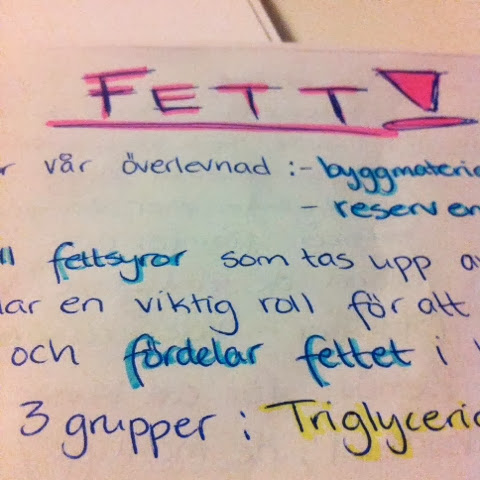 FETT!
r vår överlevnad :- byggmateria
- reserv en
ll fettsyror som tas upp av
lar en viktig roll för att
och fördelar fettet i
3 grupper : Triglyceri